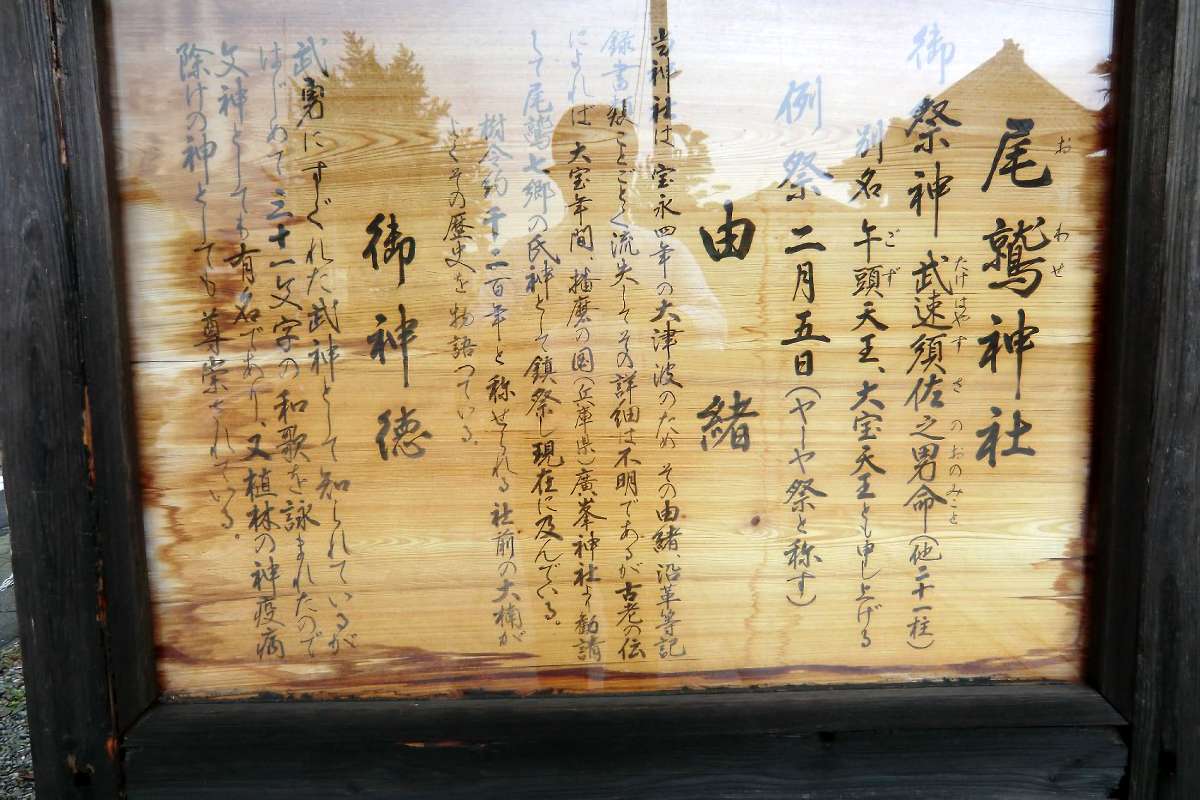 尾鷲神社
おわせ
御祭神　武速須佐之男命(他二十一柱)
たけはやすさのおのみこと
別名　午頭天王、大宝天王とも申し上げる
ごず
例祭　二月五日(ヤーヤ祭と称す)
由緒
当神社は宝永四年の大津波のためその由緒、沿革等記
録書類ことごとく流失してその詳細は不明であるが古老の伝
によれば大宝年間、播磨の国(兵庫県)廣峯神社より勧請
して尾鷲七郷の氏神として鎮祭し現在に及んでいる。
樹令約千二百年と称せられる社前の大楠が
よくその歴史を物語っている。
御神徳
武勇にすぐれた武神として知られているが
はじめて三十一文字の和歌を詠まれたので
文神としても有名であり、又植林の神疫病
除けの神としても尊崇されている。